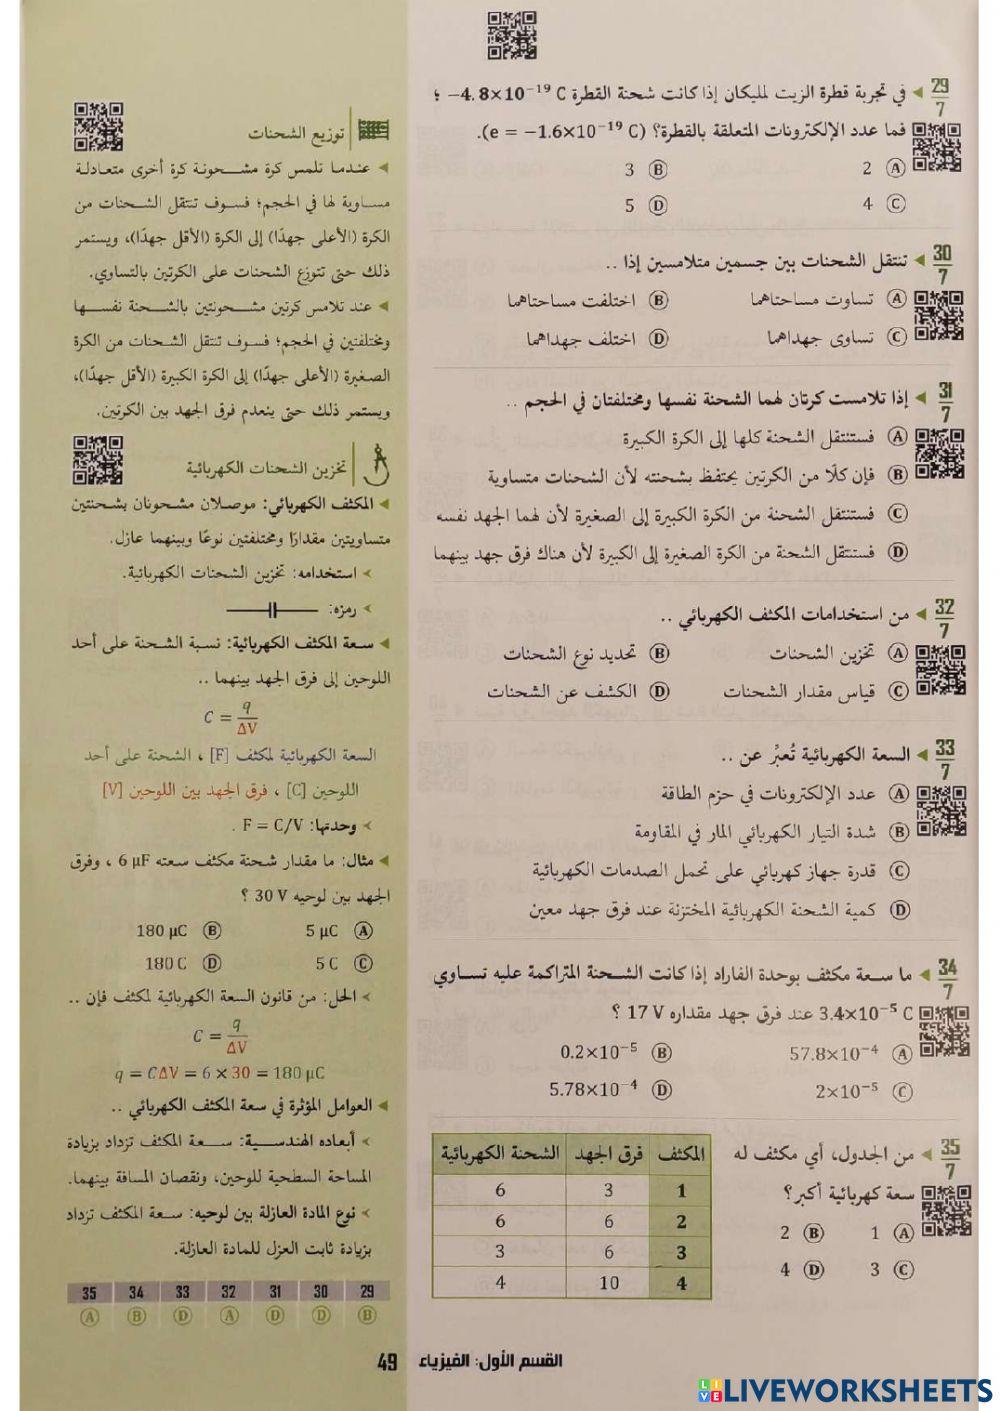 29/7 ◄ في تجربة قطرة الزيت لمليكان إذا كانت شحنة القطرة −4.8×10⁻¹⁹ C ؛
فما عدد الإلكترونات المتعلقة بالقطرة؟ (e = −1.6×10⁻¹⁹ C).
Ⓐ 2 Ⓑ 3
Ⓒ 4 Ⓓ 5
30/7 ◄ تنتقل الشحنات بين جسمين متلامسين إذا ..
Ⓐ تساوت مساحتاهما Ⓑ اختلفت مساحتاهما
Ⓒ تساوى جهداهما Ⓓ اختلف جهداهما
31/7 ◄ إذا تلامست كرتان لهما الشحنة نفسها ومختلفتان في الحجم ..
Ⓐ فستنتقل الشحنة كلها إلى الكرة الكبيرة
Ⓑ فإن كلًا من الكرتين يحتفظ بشحنته لأن الشحنات متساوية
Ⓒ فستنتقل الشحنة من الكرة الكبيرة إلى الصغيرة لأن لهما الجهد نفسه
Ⓓ فستنتقل الشحنة من الكرة الصغيرة إلى الكبيرة لأن هناك فرق جهد بينهما
32/7 ◄ من استخدامات المكثف الكهربائي ..
Ⓐ تخزين الشحنات Ⓑ تحديد نوع الشحنات
Ⓒ قياس مقدار الشحنات Ⓓ الكشف عن الشحنات
33/7 ◄ السعة الكهربائية تُعبِّر عن ..
Ⓐ عدد الإلكترونات في حزم الطاقة
Ⓑ شدة التيار الكهربائي المار في المقاومة
Ⓒ قدرة جهاز كهربائي على تحمل الصدمات الكهربائية
Ⓓ كمية الشحنة الكهربائية المختزنة عند فرق جهد معين
34/7 ◄ ما سعة مكثف بوحدة الفاراد إذا كانت الشحنة المتراكمة عليه تساوي
3.4×10⁻⁵ C عند فرق جهد مقداره 17 V ؟
Ⓐ 57.8×10⁻⁴ Ⓑ 0.2×10⁻⁵
Ⓒ 2×10⁻⁵ Ⓓ 5.78×10⁻⁴
35/7 ◄ من الجدول، أي مكثف له
سعة كهربائية أكبر؟
Ⓐ 1 Ⓑ 2
Ⓒ 3 Ⓓ 4
المكثف فرق الجهد الشحنة الكهربائية
1 3 6
2 6 6
3 6 3
4 10 4
توزيع الشحنات
◄ عندما تلمس كرة مشحونة كرة أخرى متعادلة
مساوية لها في الحجم؛ فسوف تنتقل الشحنات من
الكرة (الأعلى جهدًا) إلى الكرة (الأقل جهدًا)، ويستمر
ذلك حتى تتوزع الشحنات على الكرتين بالتساوي.
◄ عند تلامس كرتين مشحونتين بالشحنة نفسها
ومختلفتين في الحجم؛ فسوف تنتقل الشحنات من الكرة
الصغيرة (الأعلى جهدًا) إلى الكرة الكبيرة (الأقل جهدًا)،
ويستمر ذلك حتى ينعدم فرق الجهد بين الكرتين.
تخزين الشحنات الكهربائية
◄ المكثف الكهربائي: موصلان مشحونان بشحنتين
متساويتين مقدارًا ومختلفتين نوعًا وبينهما عازل.
➤ استخدامه: تخزين الشحنات الكهربائية.
➤ رمزه:
◄ سعة المكثف الكهربائية: نسبة الشحنة على أحد
اللوحين إلى فرق الجهد بينهما ..
C = q/ΔV
السعة الكهربائية لمكثف [F] ، الشحنة على أحد
اللوحين [C] ، فرق الجهد بين اللوحين [V]
➤ وحدتها: F = C/V .
◄ مثال: ما مقدار شحنة مكثف سعته 6 μF ، وفرق
الجهد بين لوحيه 30 V ؟
Ⓐ 5 μC Ⓑ 180 μC
Ⓒ 5 C Ⓓ 180 C
➤ الحل: من قانون السعة الكهربائية لمكثف فإن ..
C = q/ΔV
q = CΔV = 6 × 30 = 180 μC
◄ العوامل المؤثرة في سعة المكثف الكهربائي ..
➤ أبعاده الهندسية: سعة المكثف تزداد بزيادة
المساحة السطحية للوحين، ونقصان المسافة بينهما.
➤ نوع المادة العازلة بين لوحيه: سعة المكثف تزداد
بزيادة ثابت العزل للمادة العازلة.
29 30 31 32 33 34 35
Ⓑ Ⓓ Ⓓ Ⓐ Ⓓ Ⓑ Ⓐ
القسم الأول: الفيزياء 49
LIVE LIVEWORKSHEETS